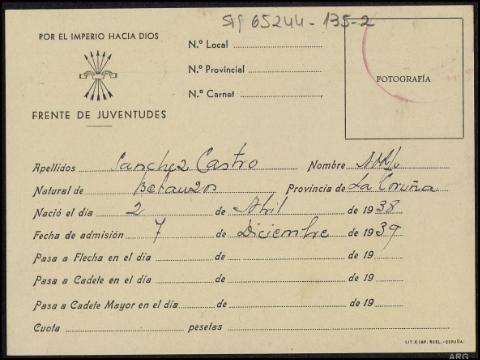 Sig 65244-135-2
POR EL IMPERIO HACIA DIOS
FRENTE DE JUVENTUDES
N.º Local
N.º Provincial
N.º Carnet
FOTOGRAFÍA
Apellidos Sanchez Castro Nombre
Natural de Betanzos Provincia de La Coruña
Nació el día 2 de Abril de 1938
Fecha de admisión 7 de Diciembre de 1939
Pasa a Flecha en el día de de 19
Pasa a Cadete en el día de de 19
Pasa a Cadete Mayor en el día de de 19
Cuota pesetas
LIT. E IMP. ROEL.-CORUÑA.
ARG